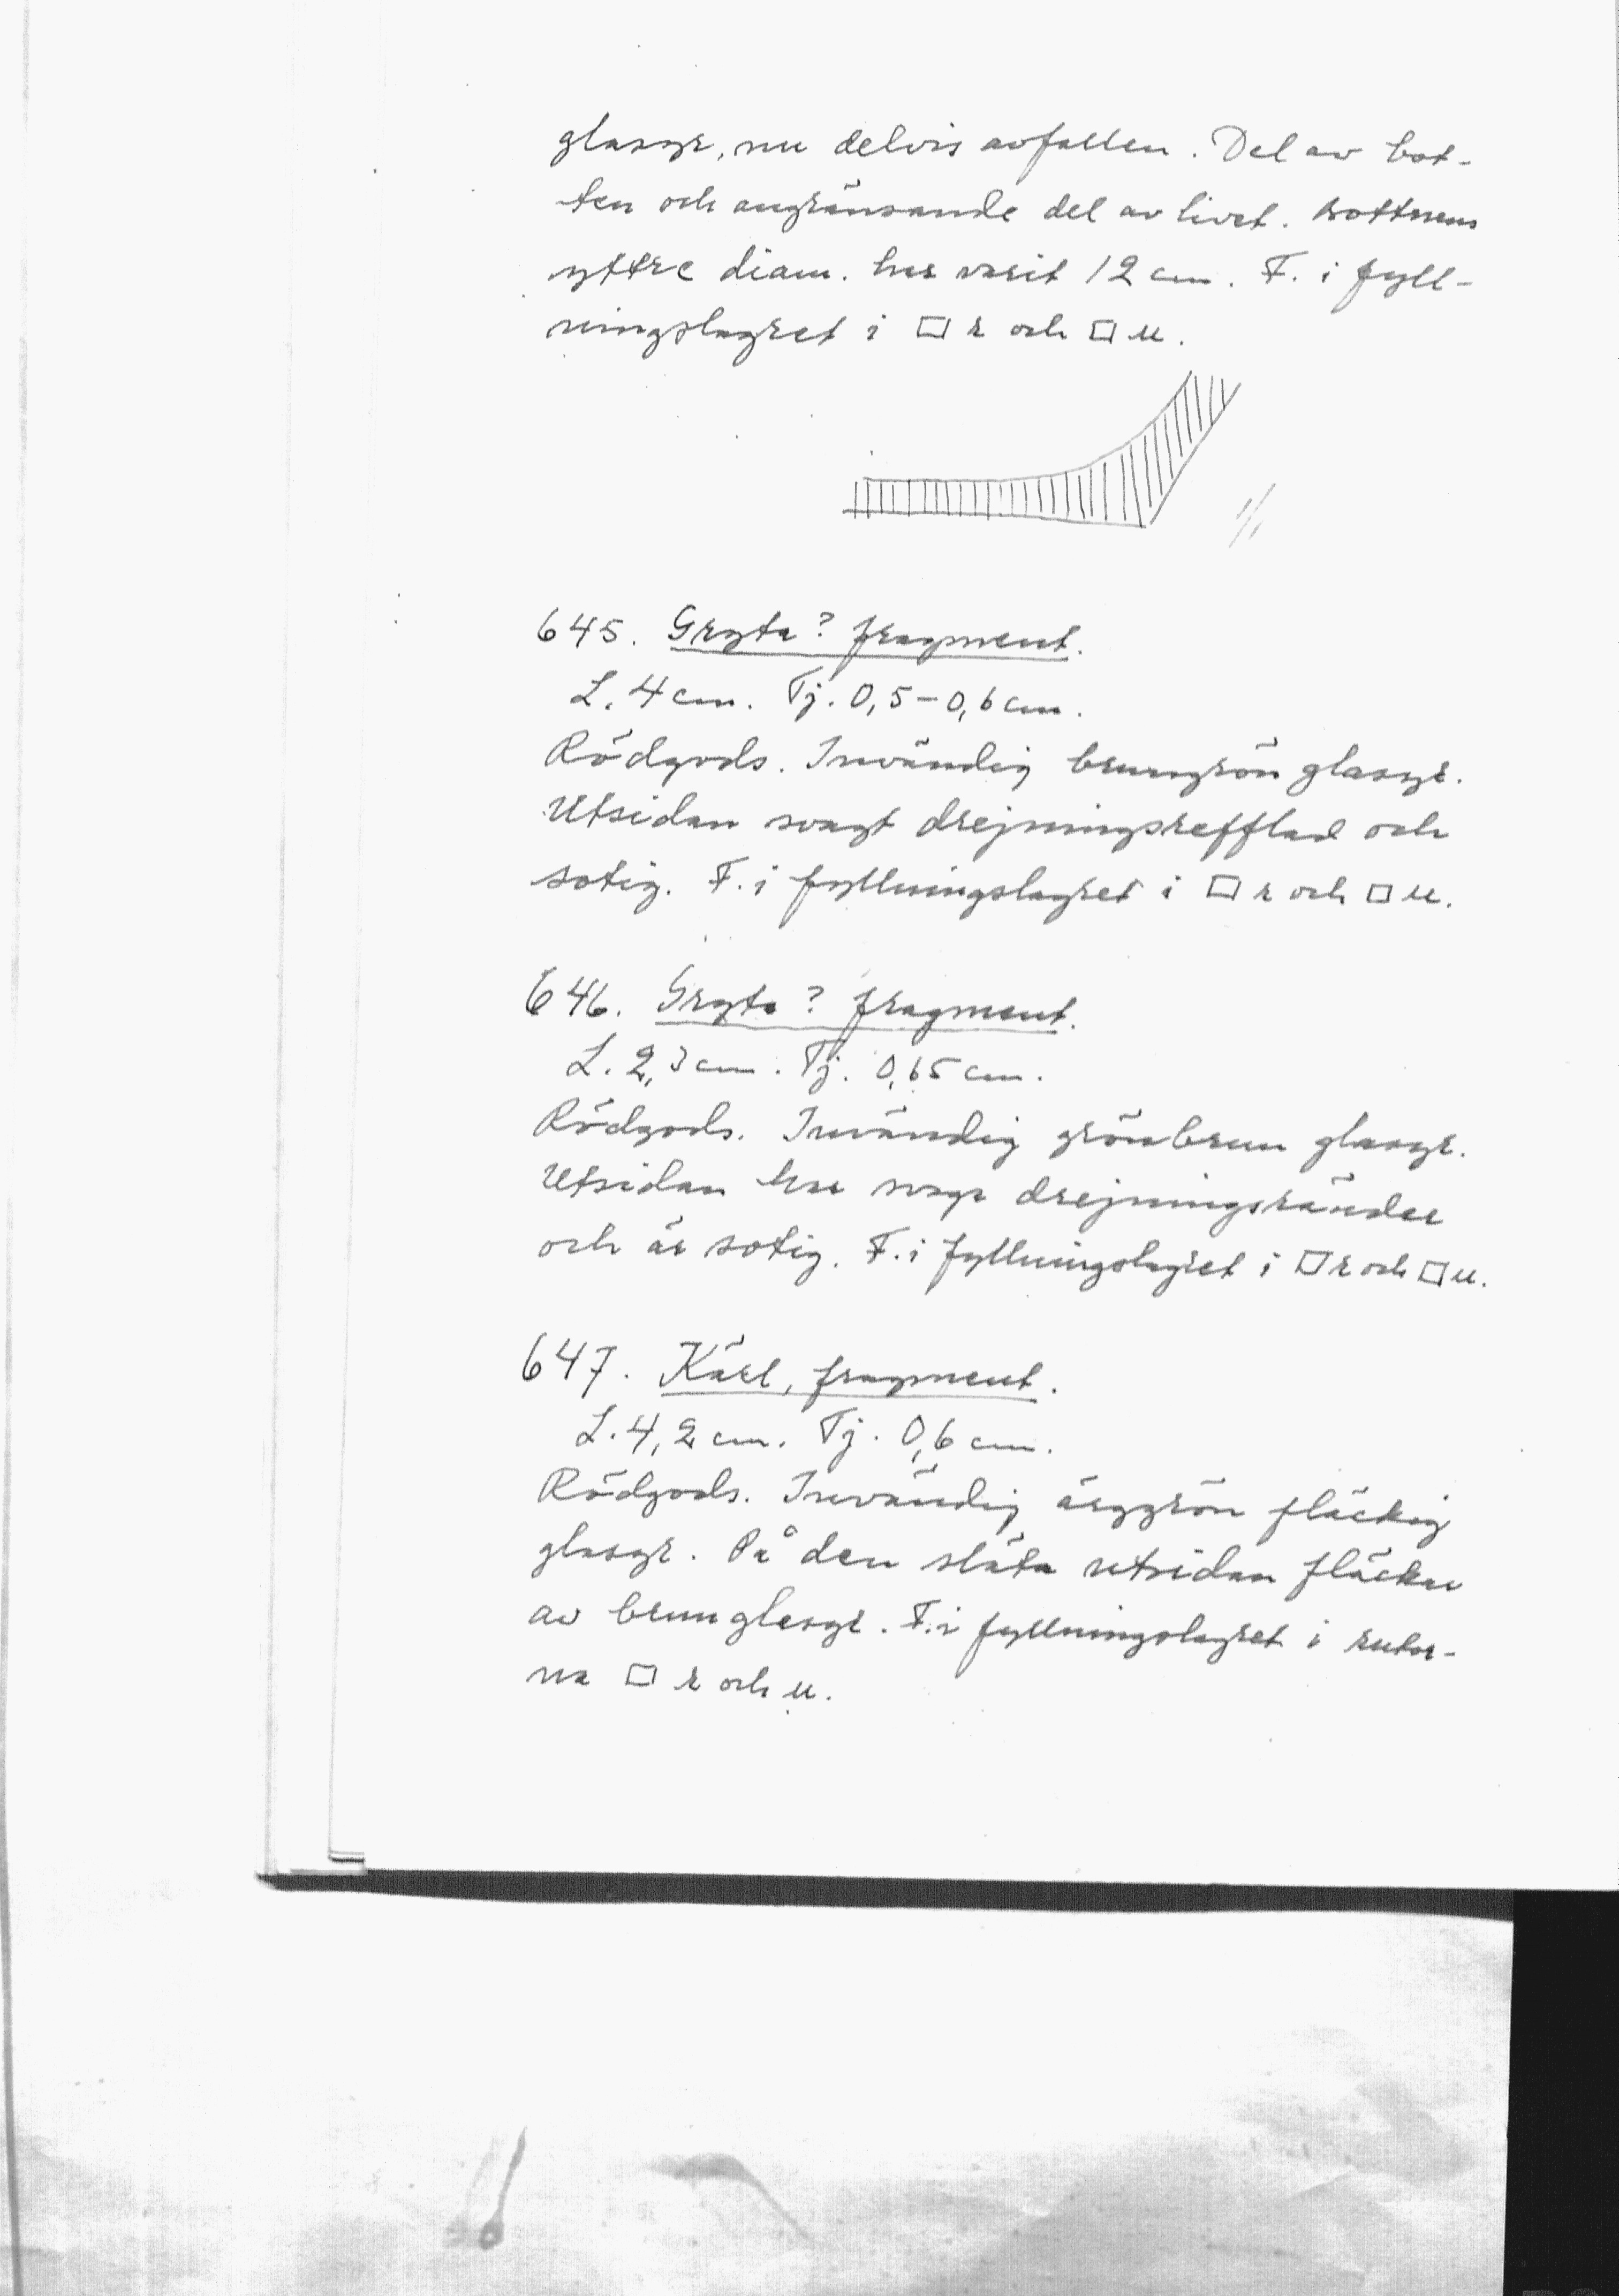 glasyr, nu delvis avfallen. Del av bot-
ten och angränsande del av livet. Bottnens
yttre diam. har varit 12 cm. F. i fyll-
ningslagret i □ r och □ u.
1/1
645. Gryta? fragment.
L. 4 cm. Tj. 0,5-0,6 cm.
Rödgods. Invändig brungrön glasyr.
Utsidan svagt drejningsrefflad och
sotig. F. i fyllningslagret i □ r och □ u.
646. Gryta? fragment.
L. 2,3 cm. Tj. 0,65 cm.
Rödgods. Invändig grönbrun glasyr.
Utsidan har svaga drejningsränder
och är sotig. F. i fyllningslagret i □ r och □ u.
647. Kärl, fragment.
L. 4,2 cm. Tj. 0,6 cm.
Rödgods. Invändig ärggrön fläckig
glasyr. På den släta utsidan fläckar
av brun glasyr. F. i fyllningslagret i rutor-
na □ r och u.